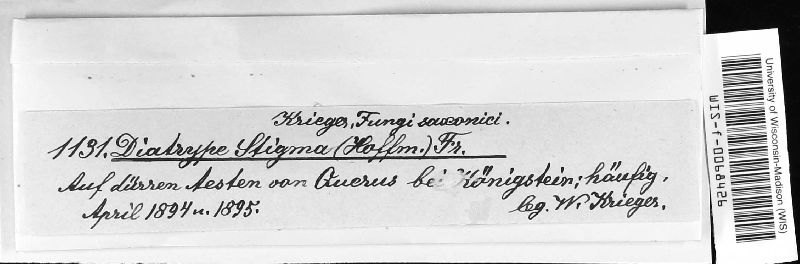 Krieger, Fungi saxonici.
1131. Diatrype Stigma (Hoffm.) Fr.
Auf dürren Aesten von Quercus bei Königstein; häufig.
April 1894 u. 1895. leg. W. Krieger.
University of Wisconsin-Madison (WIS)
WIS-f-0068426